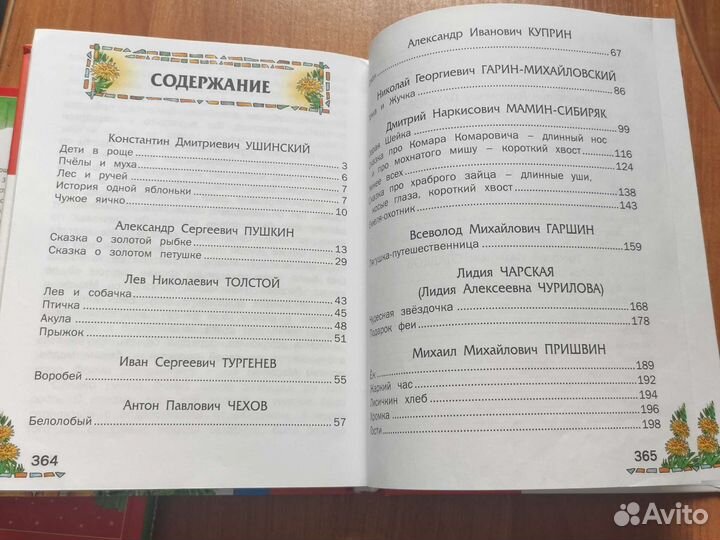 СОДЕРЖАНИЕ
Константин Дмитриевич УШИНСКИЙ
Дети в роще 3
Пчёлы и муха 6
Лес и ручей 7
История одной яблоньки 7
Чужое яичко 10
Александр Сергеевич ПУШКИН
Сказка о золотой рыбке 13
Сказка о золотом петушке 29
Лев Николаевич ТОЛСТОЙ
Лев и собачка 43
Птичка 45
Акула 48
Прыжок 51
Иван Сергеевич ТУРГЕНЕВ
Воробей 55
Антон Павлович ЧЕХОВ
Белолобый 57
364
Александр Иванович КУПРИН
67
Николай Георгиевич ГАРИН-МИХАЙЛОВСКИЙ
и Жучка 86
Дмитрий Наркисович МАМИН-СИБИРЯК
Шейка 99
про Комара Комаровича – длинный нос
и про мохнатого мишу – короткий хвост 116
всех 124
про храброго зайца – длинные уши,
косые глаза, короткий хвост 138
охотник 143
Всеволод Михайлович ГАРШИН
Лягушка-путешественница 159
Лидия ЧАРСКАЯ
(Лидия Алексеевна ЧУРИЛОВА)
Чудесная звёздочка 168
Подарок феи 178
Михаил Михайлович ПРИШВИН
Ёж 189
Жаркий час 192
Лисичкин хлеб 194
Хромка 196
Гости 198
365
Avito